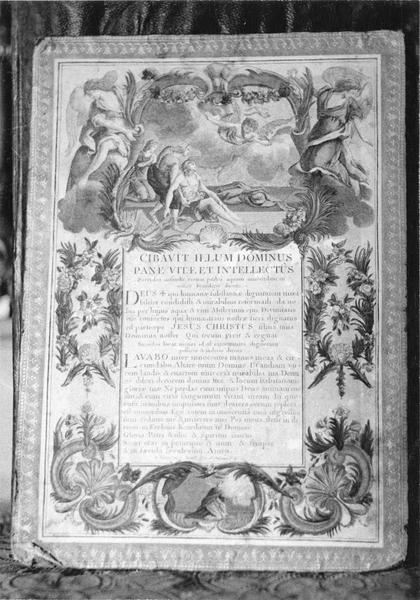 CIBAVIT ILLUM DOMINUS
PANE VITÆ ET INTELLECTUS
DEUS qui humanæ substantiæ dignitatem mira
biliter condidisti & mirabilius reformasti da no
bis per hujus aquæ & vini Mysterium ejus Divinitatis
esse consortes qui humanitatis nostræ fieri dignatus
est particeps JESUS CHRISTUS filius tuus
Dominus noster Qui tecum vivit & regnat
LAVABO inter innocentes manus meas & cir
cumdabo Altare tuum Domine Ut audiam vo
cem laudis & enarrem universa mirabilia tua Domi
ne dilexi decorem domus tuæ & locum habitationis
gloriæ tuæ Ne perdas cum impiis Deus animam me
am & cum viris sanguinum vitam meam In quo
rum manibus iniquitates sunt dextera eorum repleta
est muneribus Ego autem in innocentia mea ingressus
sum redime me & miserere mei Pes meus stetit in di
recto in Ecclesiis benedicam te Domine
Gloria Patri & filio & Spiritui sancto
Sicut erat in principio & nunc & semper
& in sæcula sæculorum Amen